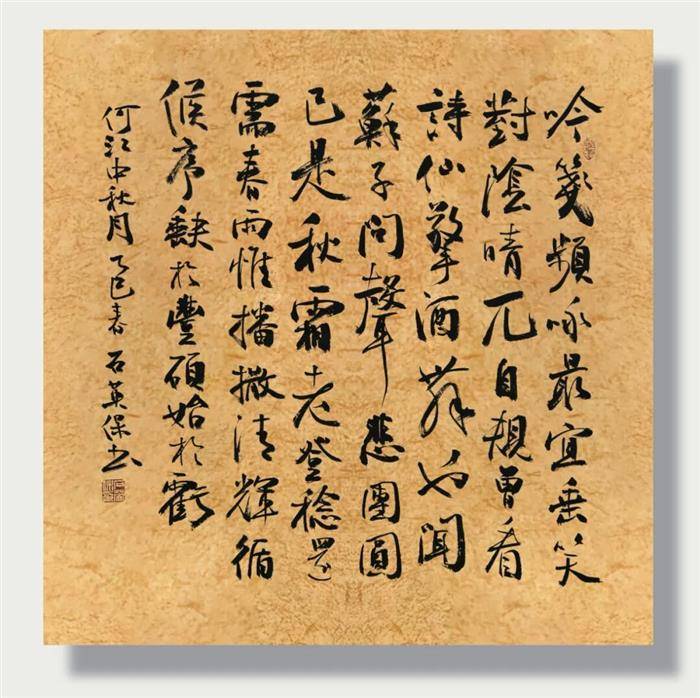 吟箋頻咏最宜垂笑
對陰晴兀自曾看
詩仙擎酒舞也聞
蘇子問聲悲團圓
已是秋霜老登稔還
需春雨惟播撒清輝循
候序於豐碩始於虧
何江中秋月 乙巳春 石英保书